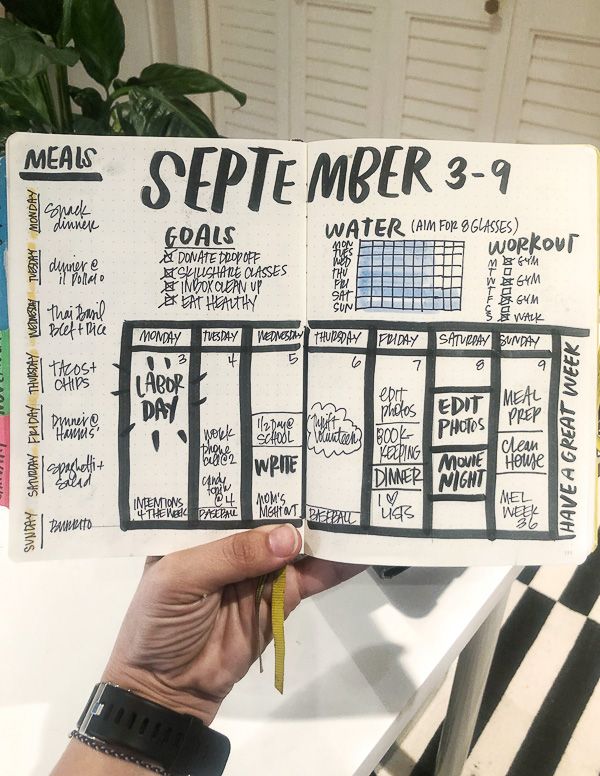 MEALS
SEPTEMBER 3-9
MONDAY
Snack
dinner
TUESDAY
dinner @
il Postato
WEDNESDAY
Thai Basil
Beef + Rice
THURSDAY
TACOS +
CHIPS
FRIDAY
Dinner @
Harris'
SATURDAY
Spaghetti +
Salad
SUNDAY
BURRITO
GOALS
DONATE DROP OFF
SKILLSHARE CLASSES
INBOX CLEAN UP
EAT HEALTHY
WATER (AIM FOR 8 GLASSES)
MON
TUES
WED
THU
FRI
SAT
SUN
WORKOUT
M GYM
T
W GYM
T
F GYM
S
S WALK
MONDAY
3
LABOR
DAY
INTENTIONS
4 THE WEEK
TUESDAY
4
work
phone
call @ 2
@ 4
BASEBALL
WEDNESDAY
5
1/2 Day @
SCHOOL
WRITE
MOM'S
NIGHT OUT
THURSDAY
6
Thrift
Volunteer
BASEBALL
FRIDAY
7
edit
photos
BOOK-
KEEPING
DINNER
I ♡
LISTS
SATURDAY
8
EDIT
PHOTOS
MOVIE
NIGHT
SUNDAY
9
MEAL
PREP
Clean
House
MEL
WEEK
36
HAVE A GREAT WEEK